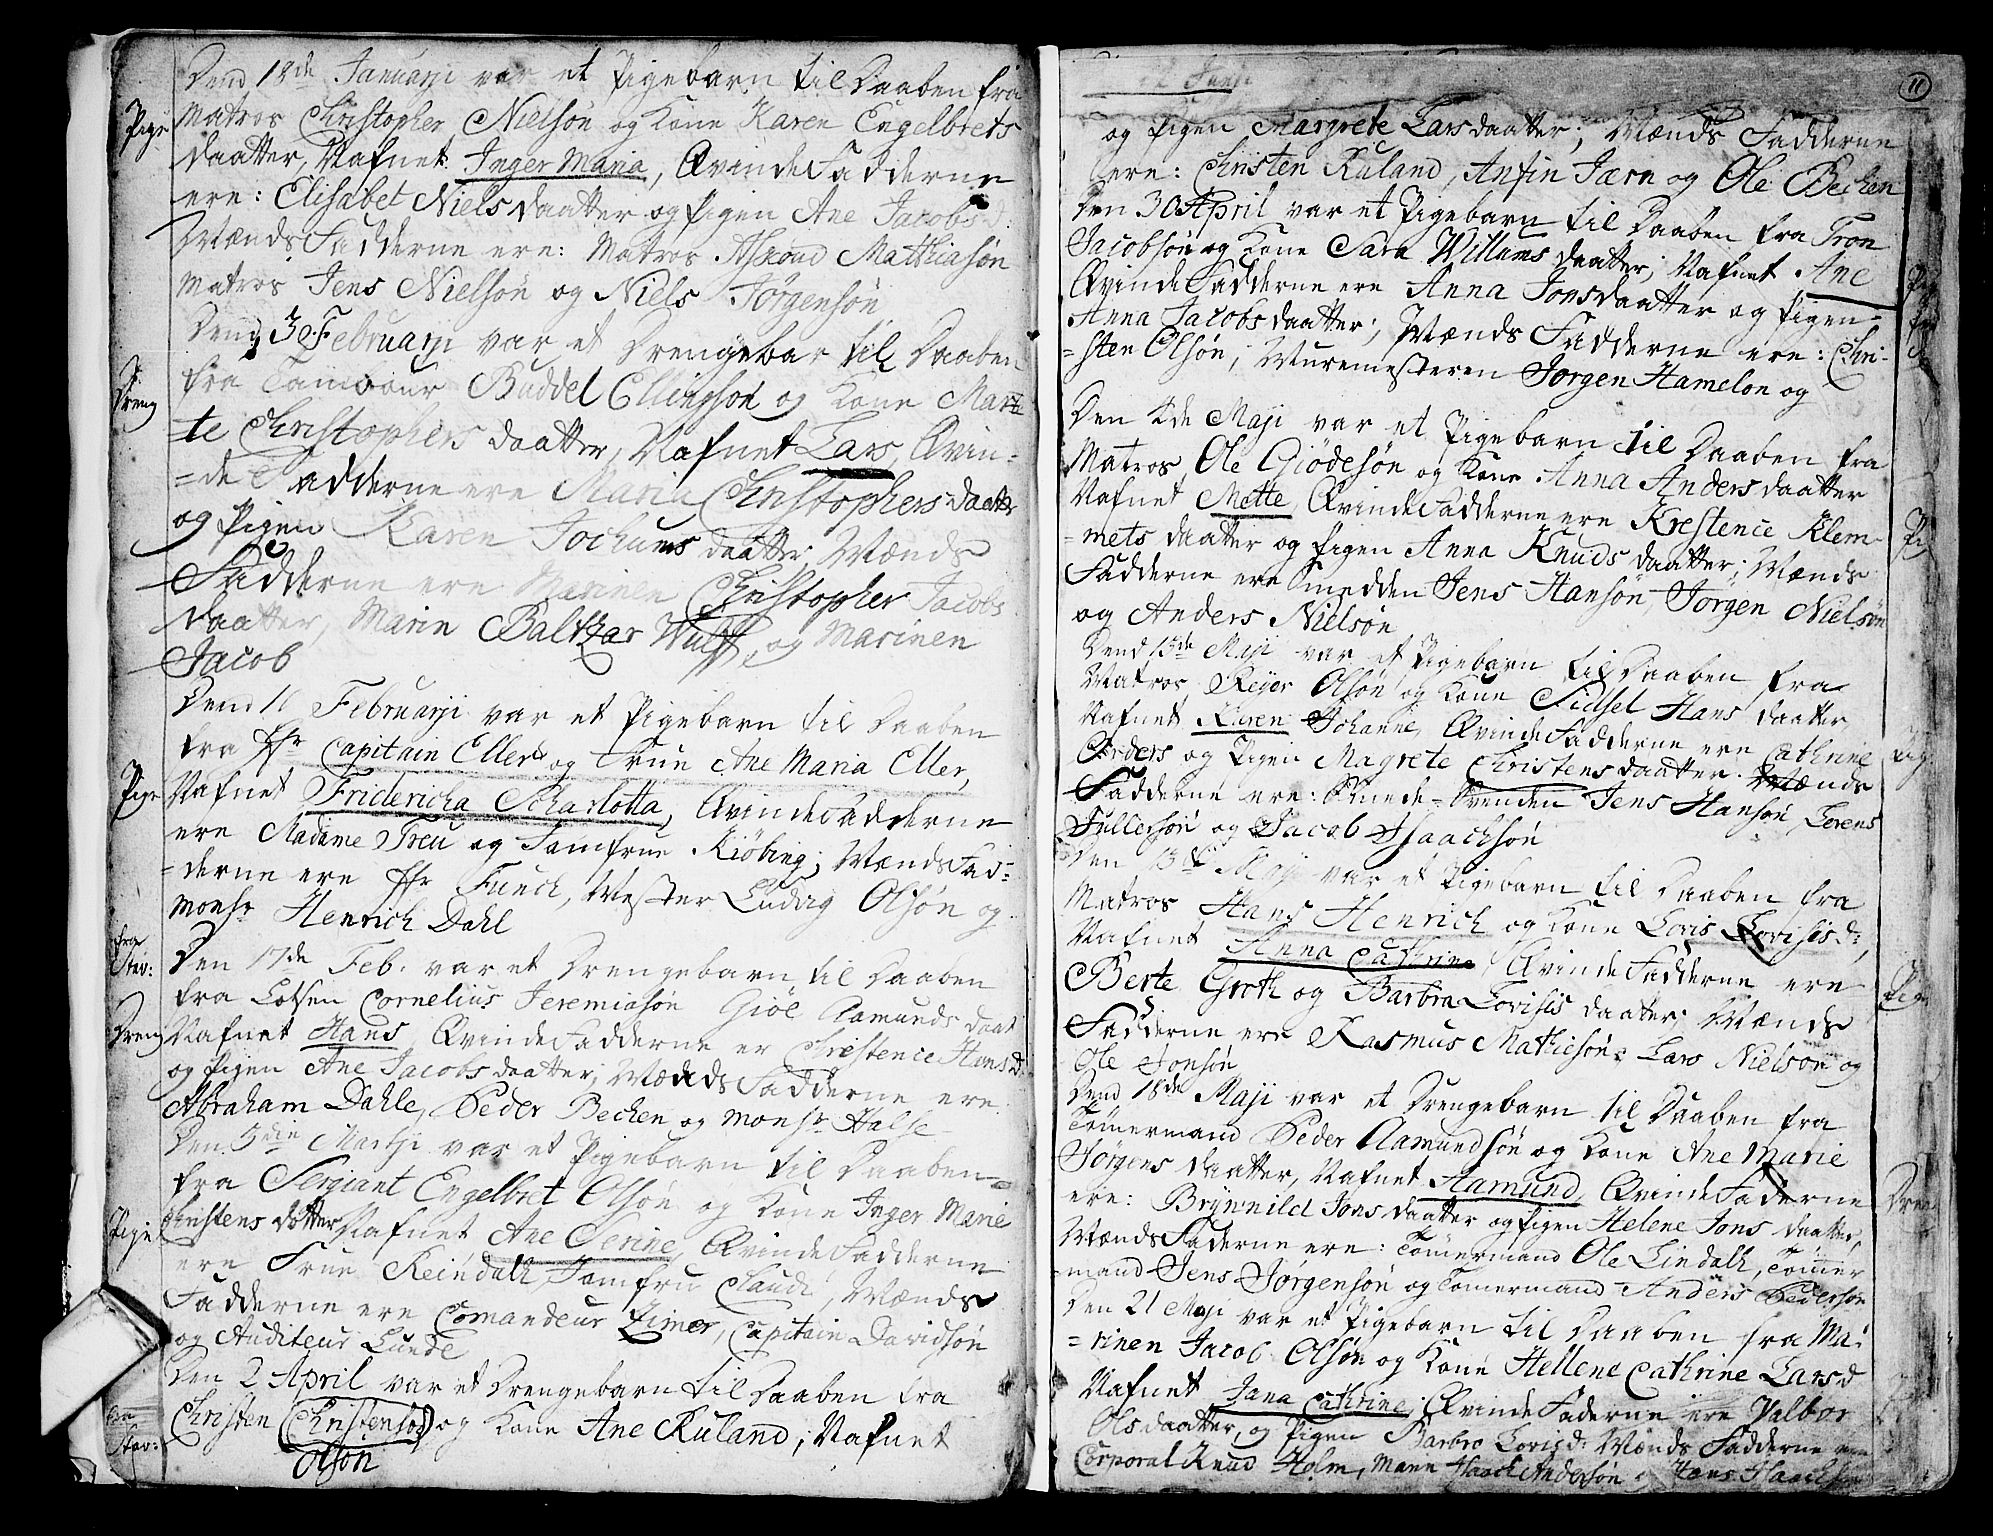 Dend 18de Januarji var et Pigebarn til Daaben fra
Pige
Matros Christopher Nielsøn og Kone Karen Engelbrets
daatter, Nafnet Inger Maria, QvindeFadderne
ere: Elisabet Nielsdaatter og Pigen Ane Jacobsd:
MændsFadderne ere: Matros Askoud Mathiasøn
Matros Jens Nielsøn og Niels Jørgensøn
Dend 30 Februarji var et Drengebar til Daaben
Dreng
fra Tambour Buddel Ellingsøn og Kone Mar=
=te Christophersdaatter, Nafnet Lars, Qvin=
=de Fadderne ere Maria Christophersdaatter
og Pigen Karen Jochums daatter, Mænds
Fadderne ere Marinen Christopher Jacobs
daatter, Marin Baltzar Wulff, og Marinen
Jacob
Dend 11 Februarji var et Pigebarn til Daaben
fra Hr Capitain Eller og Frue Ane Maria Eller,
Pige
Nafnet Fridericha Scharlotta, QvindeFadderne
ere Madame Treu og Jomfrue Kiöbing; MændsFad=
=derne ere Hr Funch, Mester Ludvig Olsøn og
Monsr Henrich Dahl
fra
Stav:
Den 17de Feb. var et Drengebarn til Daaben
fra Lotsen Cornelius Jeremiasøn Gioe Aamunds daat
Dreng
Nafnet Hans, QvindeFadderne er Christence Hansd:
og Pigen Ane Jacobsdaatter; MændsFadderne ere
Abraham Dahle, Peder Bechen og Monsr Halse
Den 5 Martji var et Pigebarn til Daaben
fra Sergiant Engelbret Olsøn og Kone Inger Marie
Pige
Christens dotter Nafnet Ane Serine, QvindeFadderne
ere Frue Reindalh, Jomfru Claudi, Mænds
Fadderne ere Comandeur Zimer, Capitain Davidsøn
og Auditeur Lunde
Den 2 April var et Drengebarn til Daaben fra
Stav:
Christen Christensøn og Kone Ane Ruland, Nafnet
Olsøn
11
og Pigen Margrete Larsdaatter; Mænds Fadderne
ere: Christen Ruland, Anfin Jærn og Ole Bechen
Den 30 April var et Pigebarn til Daaben fra Tron
Jacobsøn og Kone Sara Willumsdaatter; Nafnet Ane
QvindeFadderne ere Anna Jonsdaatter og Pigen
Anna Jacobsdaatter; Mænds Fadderne ere: Chri-
=sten Olsøn, Muremesteren Jørgen Hamelon og
Den 4de Maji var et Pigebarn til Daaben fra
Matros Ole Giödesøn og Kone Anna Andersdaatter
Nafnet Mette, QvindeFadderne ere Krestence Klem-
=mets daatter og Pigen Anna Knudsdaatter; Mænds
Fadderne ere Smedden Jens Hansøn, Jørgen Nielsøn
og Anders Nielsøn
Dend 13de Maji var et Pigebarn til Daaben fra
Matros Reyer Olsøn og Kone Sidsel Hans daatter
Nafnet Karen Johanne, QvindeFadderne ere Cathrine
Corders og Pigen Magrete Christensdaatter. Mænds
Fadderne ere: Smede=Svenden Jens Hansøn, Lorens
Tullersøn og Jacob Isaachsøn
Den 13de Maji var et Pigebarn til Daaben fra
Matros Hans Henrich og Kone Lovis Lovisisd:,
Nafnet Anna Cathrine, QvindeFadderne ere
Berte Groth og Barbra Lovisis daater; Mænds
Fadderne ere Rasmus Mathiesøn, Lars Nielsøn og
Ole Jonsøn
Dend 18de Maji var et Drengebarn til Daaben fra
Tømermand Peder Aamundsøn og Kone Ane Marie
Jørgens daatter, Nafnet Aamund, QvindeFaderne
ere: Brynnild Jonsdaatter og Pigen Helene Jons daatter,
MændsFaderne ere: Tømermand Ole Lindalh, Tømer
mand Jens Jørgensøn og Tømermand Anders Pedersøn
Den 21 Maji var et Pigebarn til Daaben fra Ma:
=rinen Jacob Olsøn og Kone Hellene Cathrine Larsd
Nafnet Jana Cathrine, QvindeFaderne ere Valbor
Olsdaatter, og Pigen Barbro Lovisd: Mænds Fadderne ere
Corporal Knud Holm, Mann Isaach Andersøn, Hans Isaachsøn